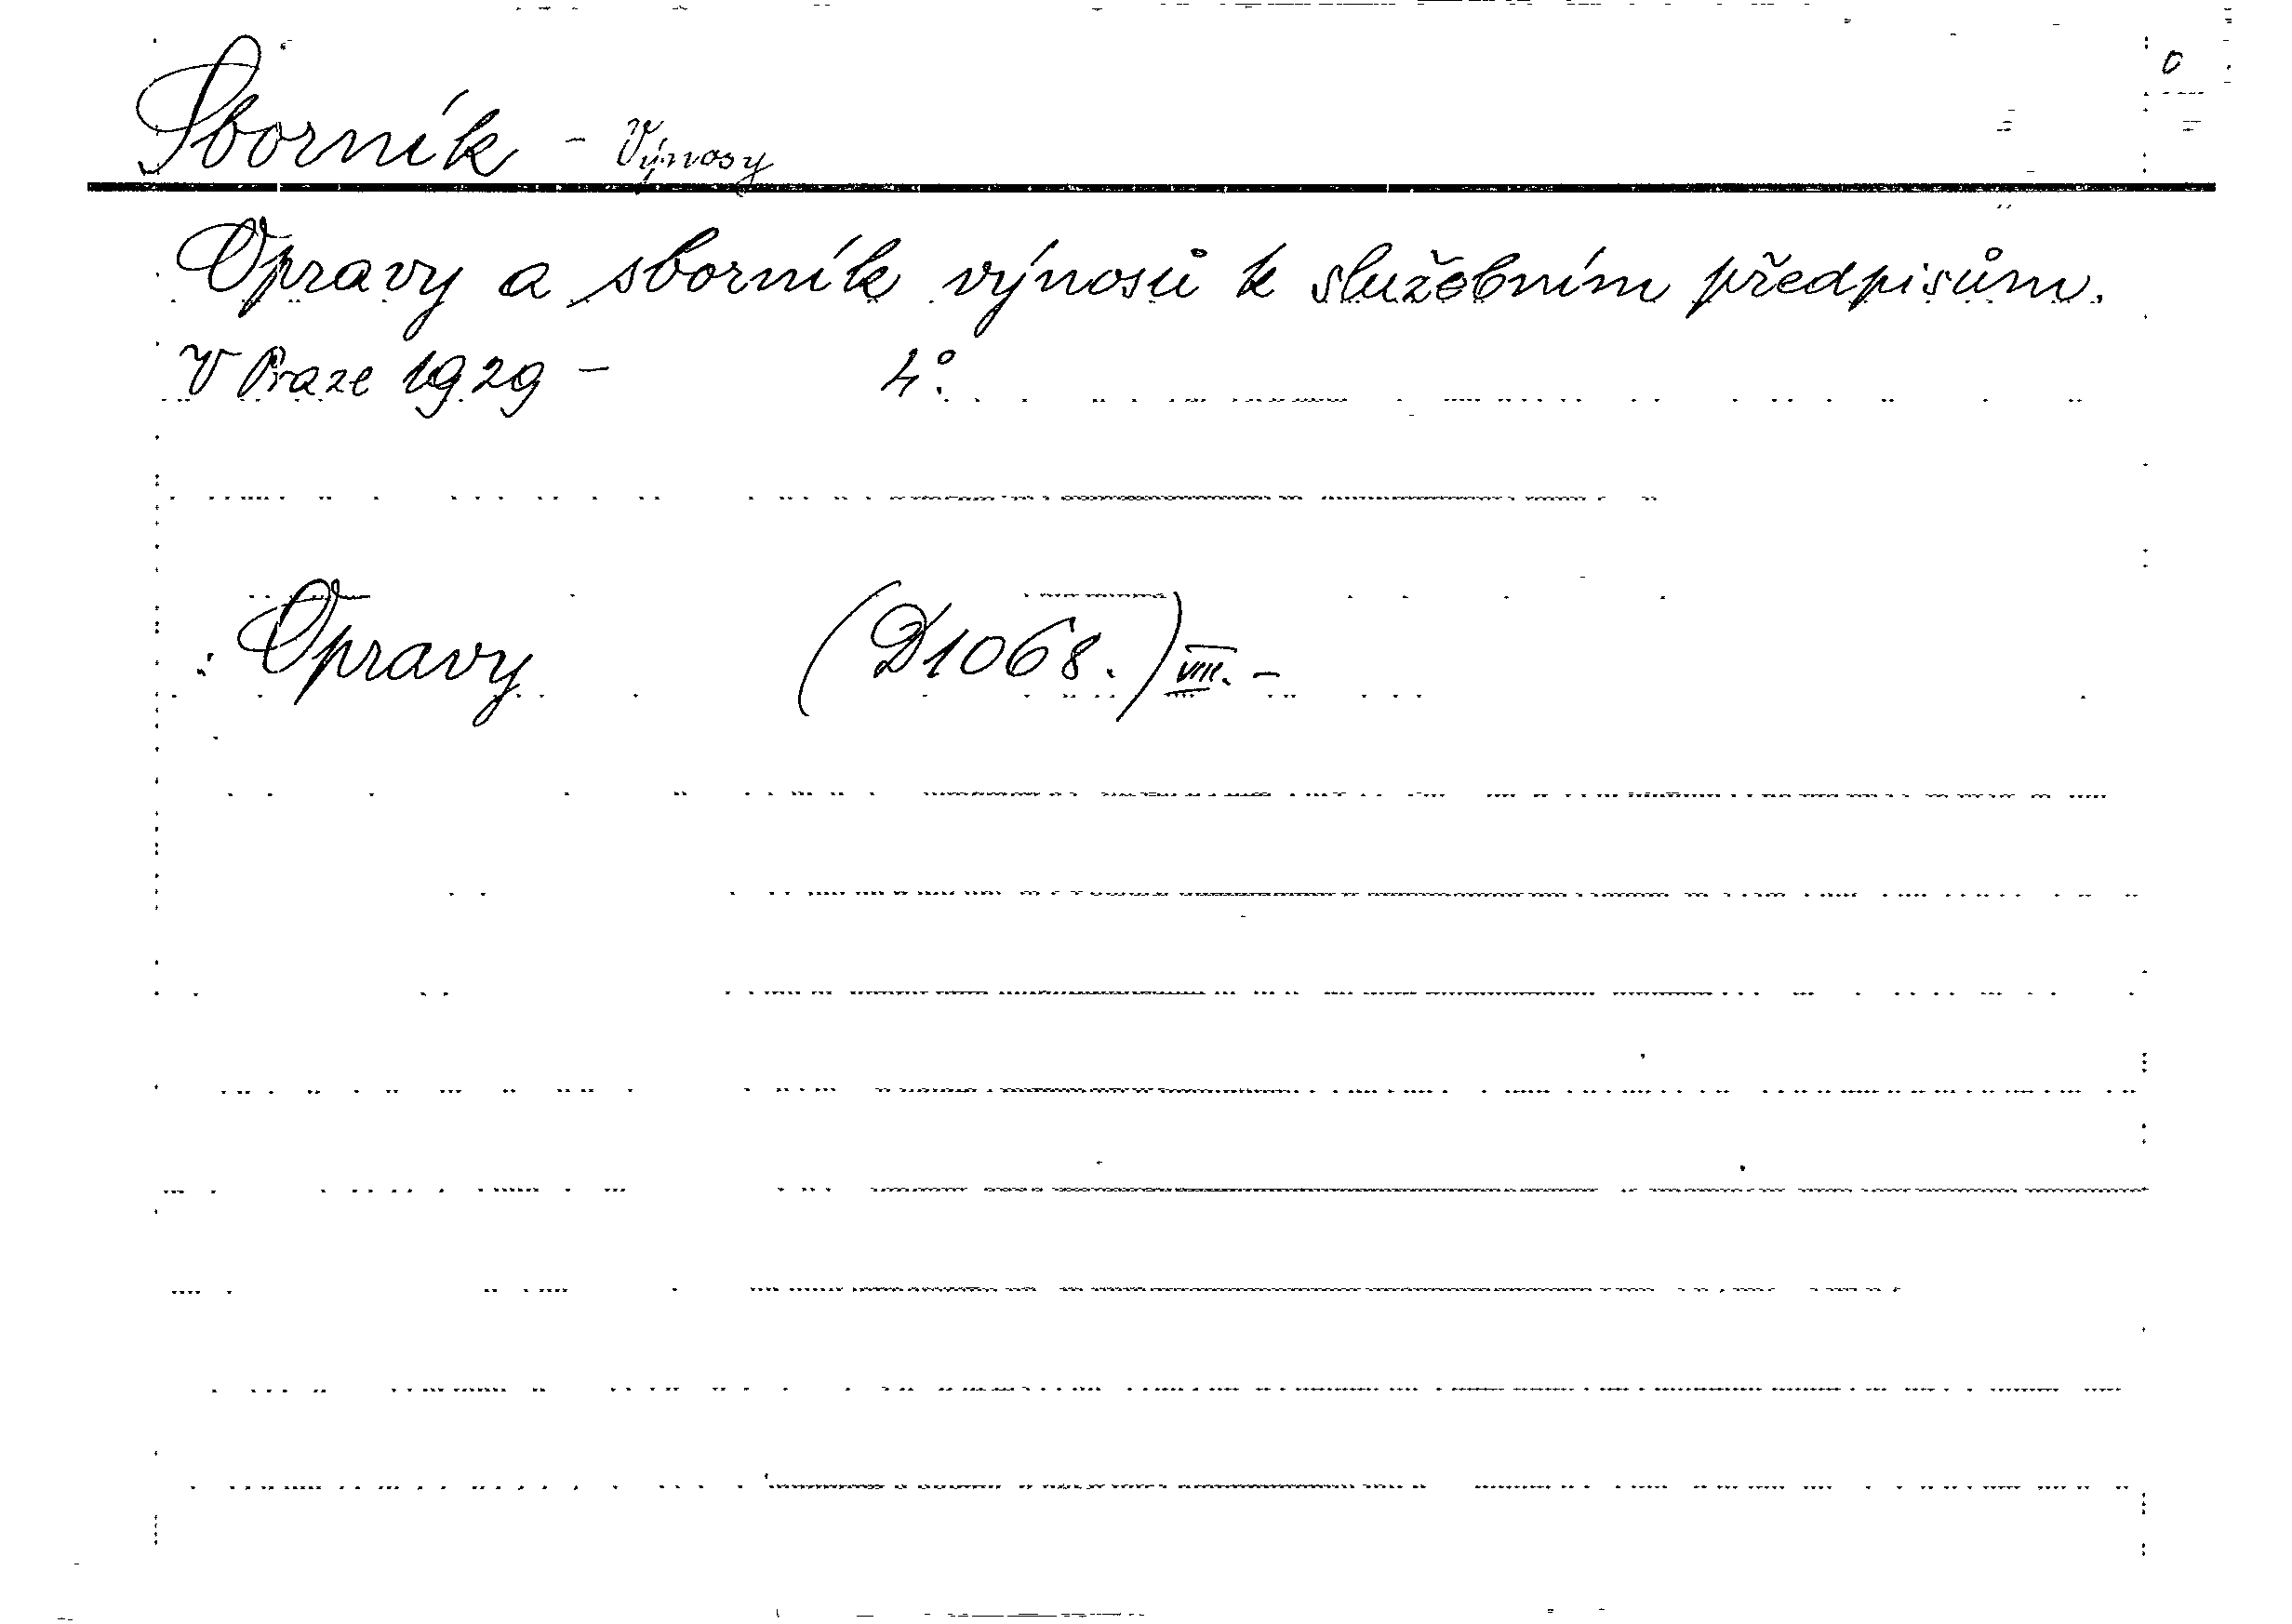 Sborník - Výnosy
Opravy a sborník výnosů k služebním předpisům.
V Praze 1929 - 4°.
Opravy (D 1068.) VIII. -